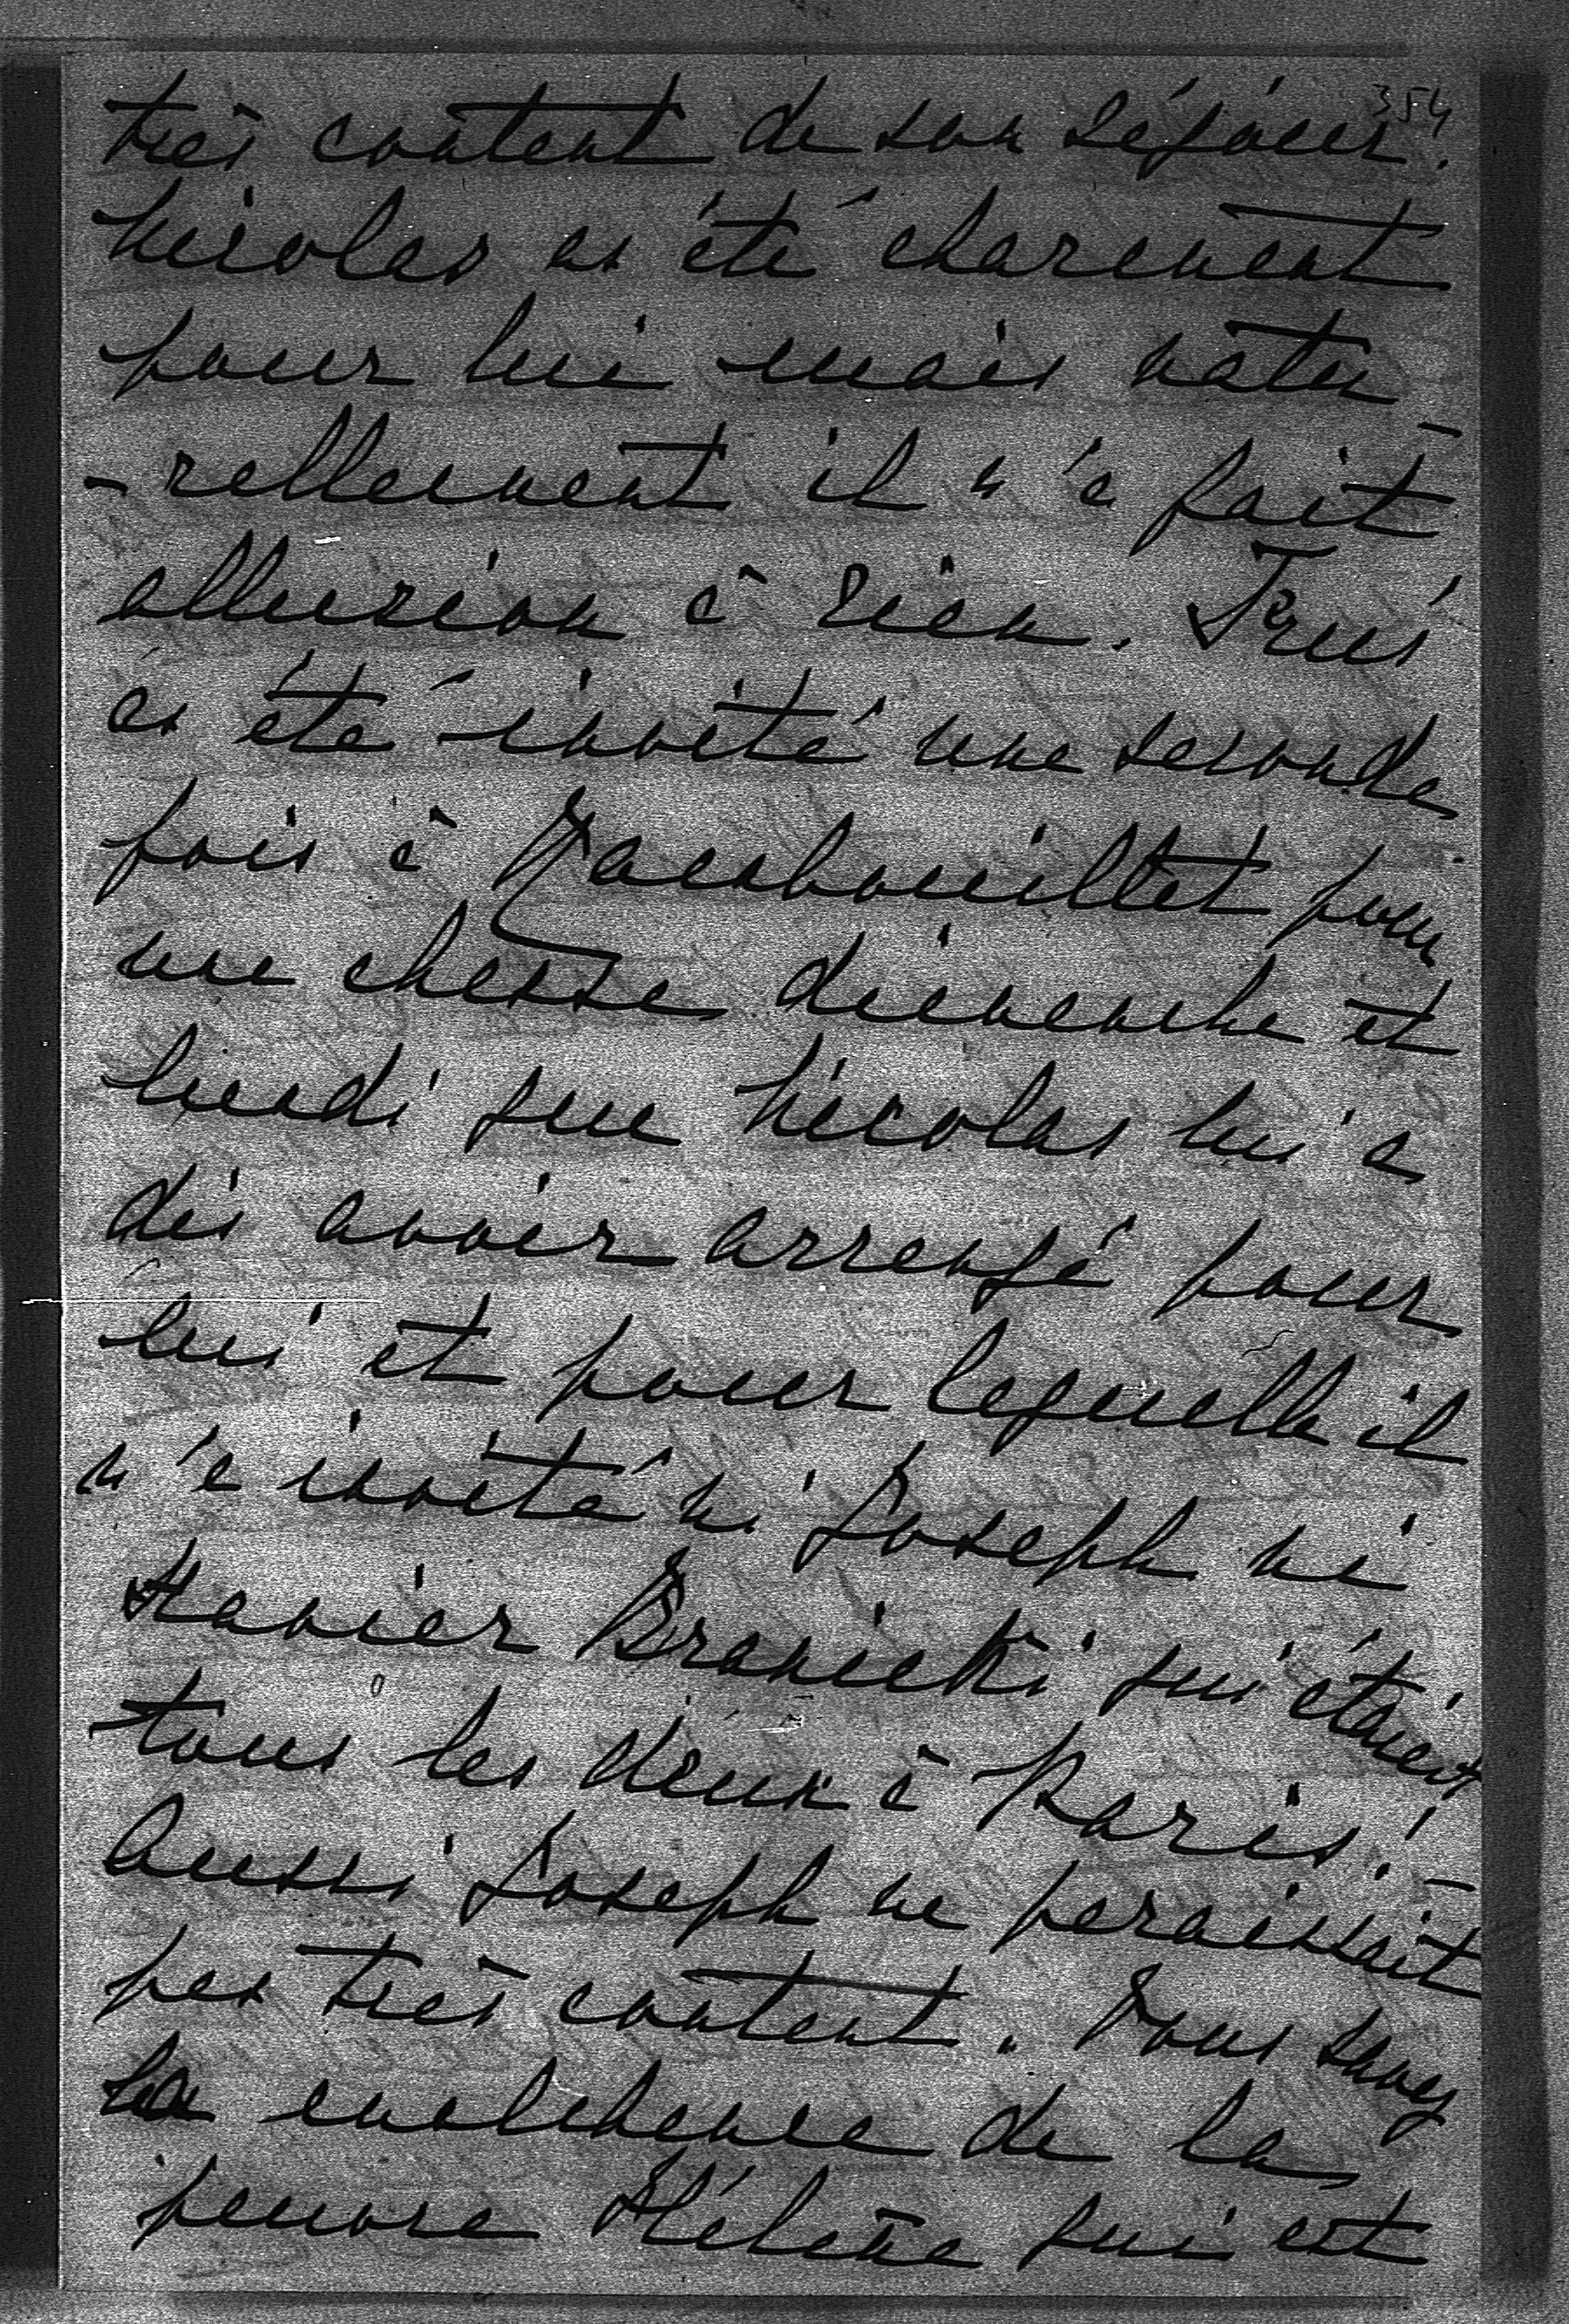 354
très content de son séjour.
Nicolas a été charmant
pour lui mais natu-
-rellement il n'a fait
allusion à rien. Fruś
a été invité une seconde
fois à Rambouillet pour
une chasse dimanche et
lundi que Nicolas lui a
dis avoir arrengé pour
lui et pour lequelle il
n'a invité ni Joseph ni
Xavier Branicki qui étaient
tous les deux à Paris! -
Aussi Joseph ne paraissait
pas très content. Vous savez
la malchance de la
pauvre Hélène qui est